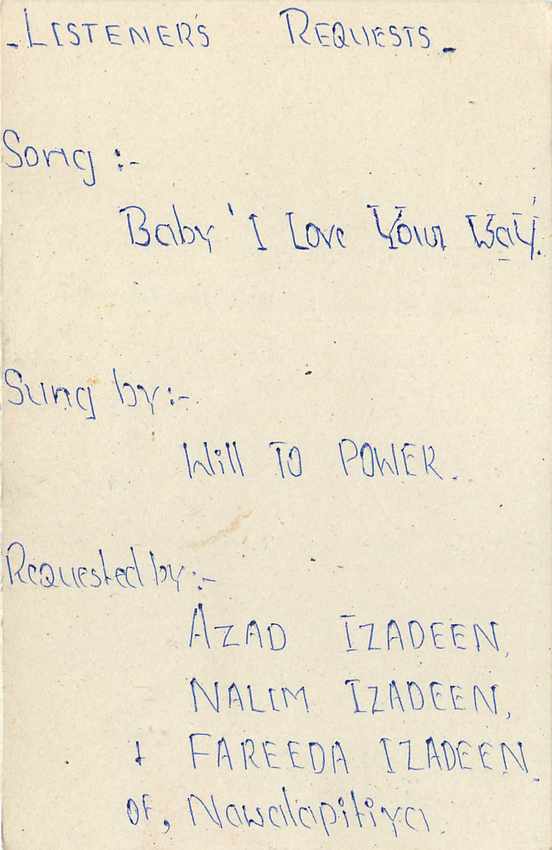 - LISTENER'S REQUESTS -
Song :-
Baby ' I Love Your Way.'
Sung by :-
Will TO POWER.
Requested by :-
AZAD IZADEEN,
NALIM IZADEEN,
+ FAREEDA IZADEEN.
Of, Nawalapitiya.